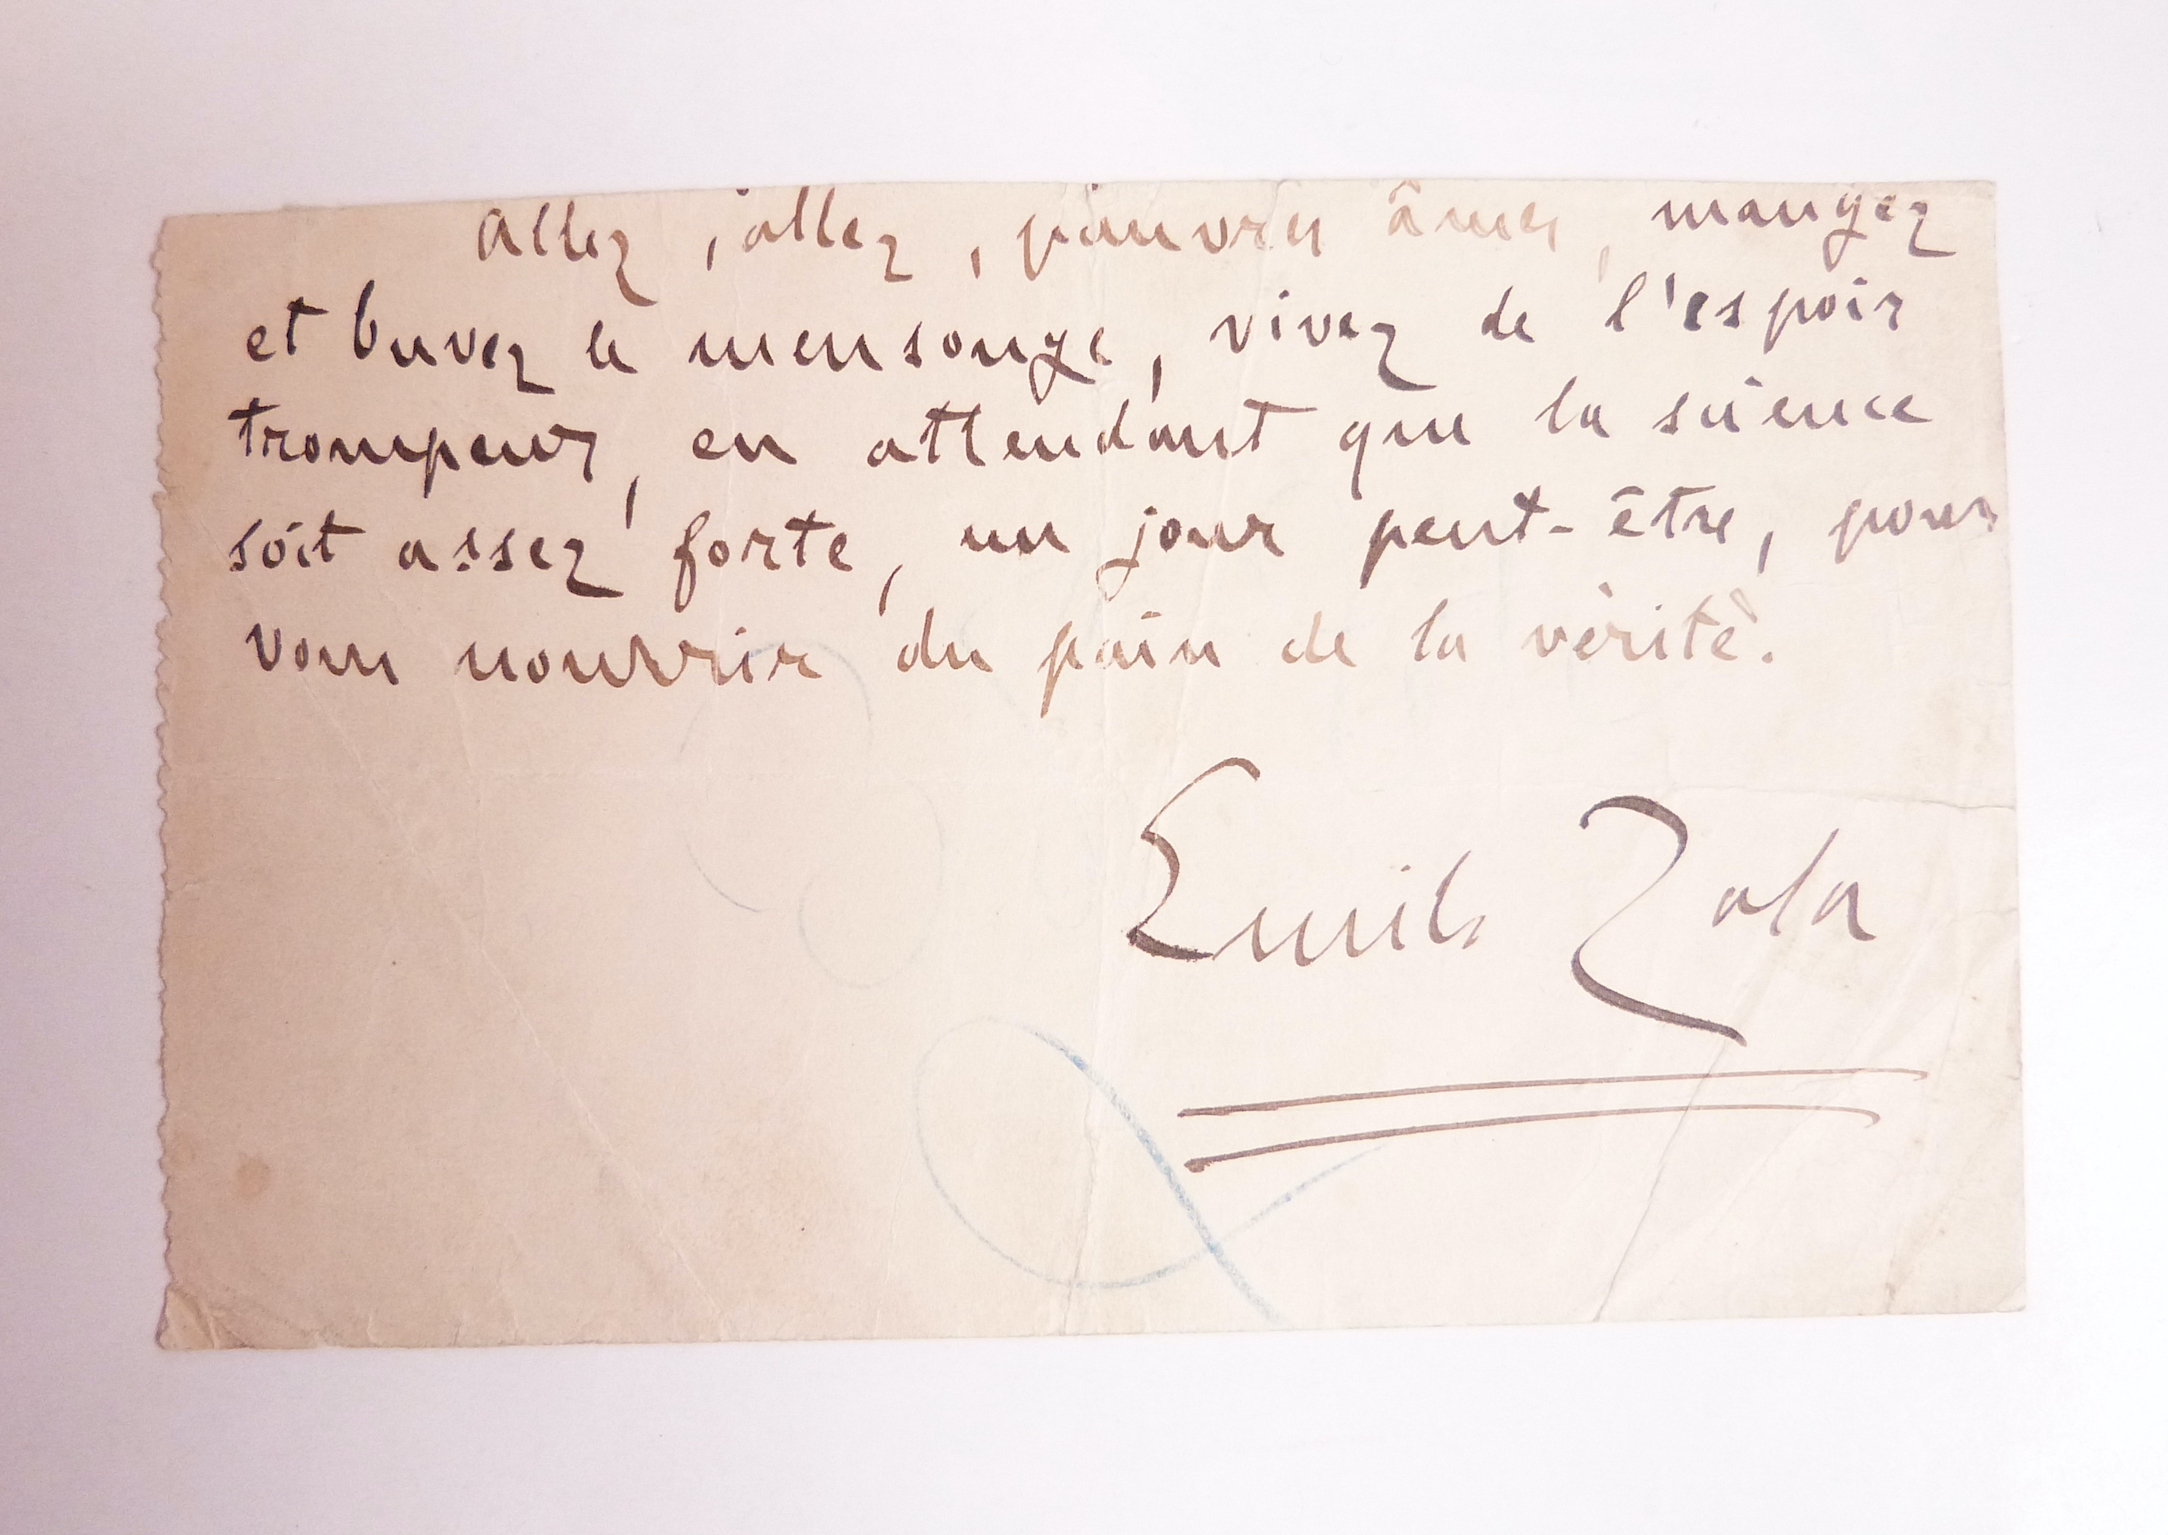 Allez, allez, pauvres âmes, mangez
et buvez le mensonge, vivez de l'espoir
trompeur, en attendant que la science
soit assez forte, un jour peut-être, pour
vous nourrir du pain de la vérité.
Emile Zola